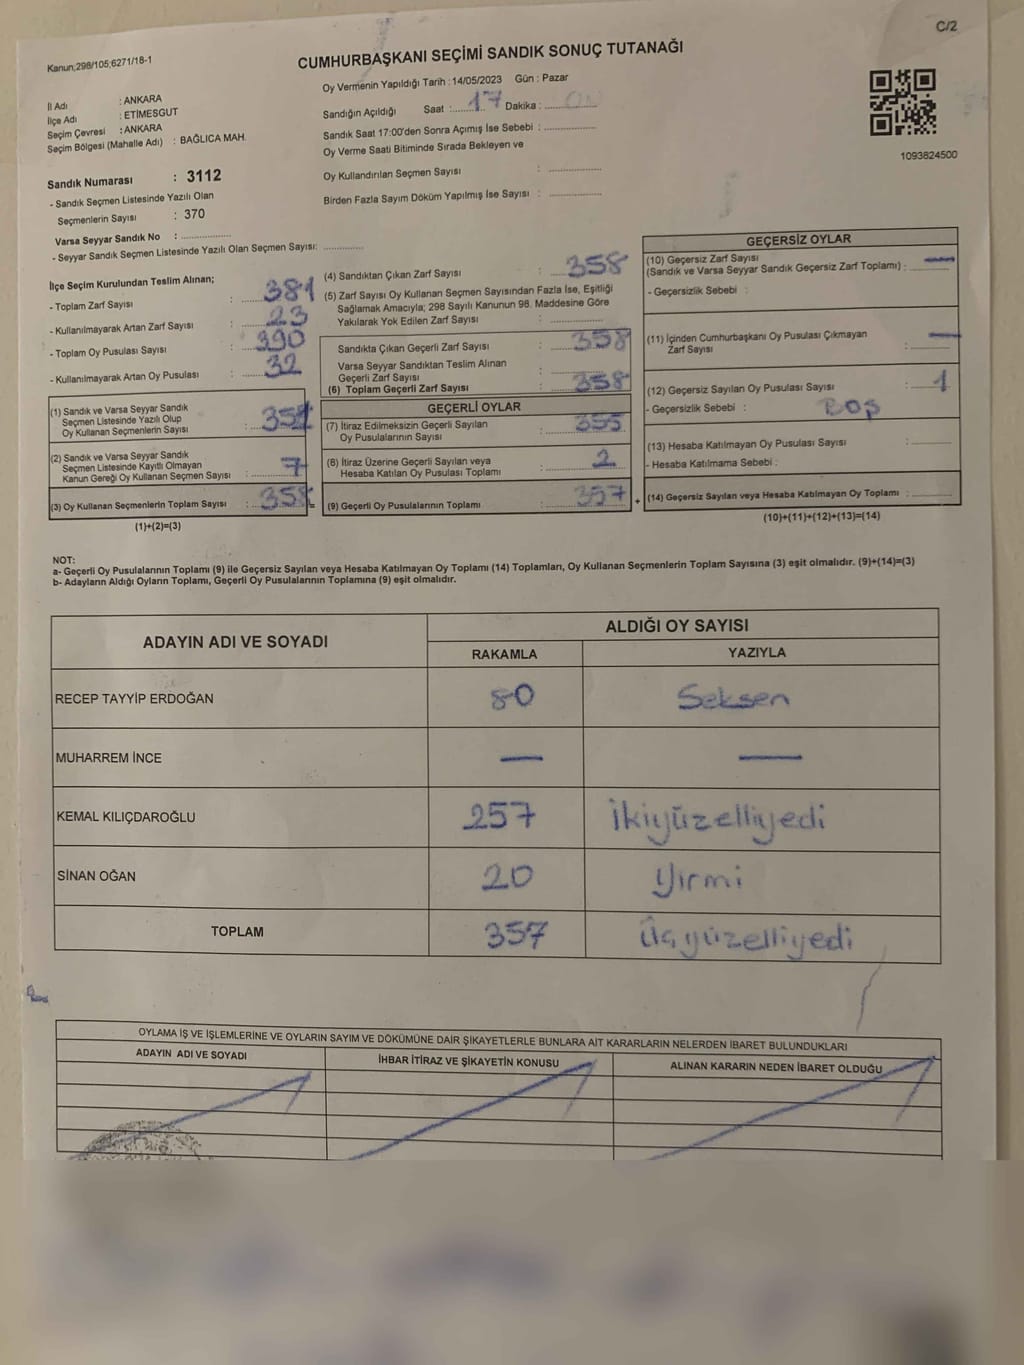 C/2
Kanun;298/105;6271/18-1
CUMHURBAŞKANI SEÇİMİ SANDIK SONUÇ TUTANAĞI
Oy Vermenin Yapıldığı Tarih : 14/05/2023 Gün : Pazar
İl Adı : ANKARA
İlçe Adı : ETİMESGUT
Seçim Çevresi : ANKARA
Seçim Bölgesi (Mahalle Adı) : BAĞLICA MAH.
Sandığın Açıldığı Saat : 17 Dakika :
Sandık Saat 17:00'den Sonra Açımış İse Sebebi :
Oy Verme Saati Bitiminde Sırada Bekleyen ve
Oy Kullandırılan Seçmen Sayısı :
Birden Fazla Sayım Döküm Yapılmış İse Sayısı :
1093824500
Sandık Numarası : 3112
- Sandık Seçmen Listesinde Yazılı Olan
Seçmenlerin Sayısı : 370
Varsa Seyyar Sandık No :
- Seyyar Sandık Seçmen Listesinde Yazılı Olan Seçmen Sayısı:
İlçe Seçim Kurulundan Teslim Alınan;
- Toplam Zarf Sayısı : 381
- Kullanılmayarak Artan Zarf Sayısı : 23
- Toplam Oy Pusulası Sayısı : 390
- Kullanılmayarak Artan Oy Pusulası : 32
(1) Sandık ve Varsa Seyyar Sandık
Seçmen Listesinde Yazılı Olup
Oy Kullanan Seçmenlerin Sayısı : 351
(2) Sandık ve Varsa Seyyar Sandık
Seçmen Listesinde Kayıtlı Olmayan
Kanun Gereği Oy Kullanan Seçmen Sayısı : 7
(3) Oy Kullanan Seçmenlerin Toplam Sayısı : 358
(1)+(2)=(3)
(4) Sandıktan Çıkan Zarf Sayısı : 358
(5) Zarf Sayısı Oy Kullanan Seçmen Sayısından Fazla İse, Eşitliği
Sağlamak Amacıyla; 298 Sayılı Kanunun 98. Maddesine Göre
Yakılarak Yok Edilen Zarf Sayısı :
Sandıkta Çıkan Geçerli Zarf Sayısı : 358
Varsa Seyyar Sandıktan Teslim Alınan
Geçerli Zarf Sayısı :
(6) Toplam Geçerli Zarf Sayısı : 358
GEÇERLİ OYLAR
(7) İtiraz Edilmeksizin Geçerli Sayılan
Oy Pusulalarının Sayısı : 355
(8) İtiraz Üzerine Geçerli Sayılan veya
Hesaba Katılan Oy Pusulası Toplamı : 2
(9) Geçerli Oy Pusulalarının Toplamı : 357 +
GEÇERSİZ OYLAR
(10) Geçersiz Zarf Sayısı
(Sandık ve Varsa Seyyar Sandık Geçersiz Zarf Toplamı) : —
- Geçersizlik Sebebi :
(11) İçinden Cumhurbaşkanı Oy Pusulası Çıkmayan
Zarf Sayısı : —
(12) Geçersiz Sayılan Oy Pusulası Sayısı : 1
- Geçersizlik Sebebi : BOŞ
(13) Hesaba Katılmayan Oy Pusulası Sayısı :
- Hesaba Katılmama Sebebi :
(14) Geçersiz Sayılan veya Hesaba Katılmayan Oy Toplamı :
(10)+(11)+(12)+(13)=(14)
NOT:
a- Geçerli Oy Pusulalarının Toplamı (9) ile Geçersiz Sayılan veya Hesaba Katılmayan Oy Toplamı (14) Toplamları, Oy Kullanan Seçmenlerin Toplam Sayısına (3) eşit olmalıdır. (9)+(14)=(3)
b- Adayların Aldığı Oyların Toplamı, Geçerli Oy Pusulalarının Toplamına (9) eşit olmalıdır.
ADAYIN ADI VE SOYADI ALDIĞI OY SAYISI
RAKAMLA YAZIYLA
RECEP TAYYİP ERDOĞAN 80 Seksen
MUHARREM İNCE — —
KEMAL KILIÇDAROĞLU 257 İkiyüzelliyedi
SİNAN OĞAN 20 Yirmi
TOPLAM 357 Üçyüzelliyedi
OYLAMA İŞ VE İŞLEMLERİNE VE OYLARIN SAYIM VE DÖKÜMÜNE DAİR ŞİKAYETLERLE BUNLARA AİT KARARLARIN NELERDEN İBARET BULUNDUKLARI
ADAYIN ADI VE SOYADI İHBAR İTİRAZ VE ŞİKAYETİN KONUSU ALINAN KARARIN NEDEN İBARET OLDUĞU